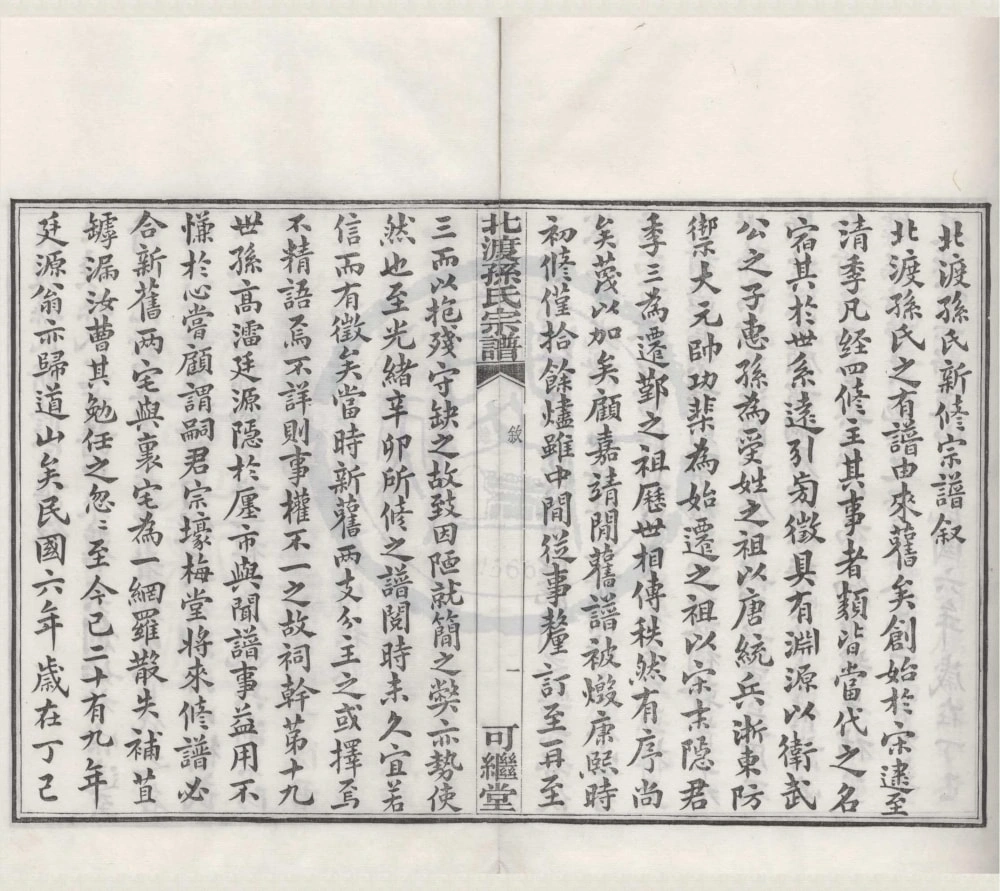 北渡孫氏新修宗譜叙
北渡孫氏之有譜由來舊矣創始於宋逮至
清季凡经四修主其事者類皆當代之名
宿其於世系遠引旁徵具有淵源以衛武
公之子惠孫為受姓之祖以唐統兵浙東防
禦大元帥功棐為始遷之祖以宋末隱君
季三為遷鄞之祖歷世相傳秩然有序尚
矣蔑以加矣顧嘉靖間舊譜被燬康熙時
初修僅拾餘燼雖中間從事釐訂至再至
北渡孫氏宗譜
敘
一
可繼堂
三而以抱殘守缺之故致因陋就簡之弊亦勢使
然也至光緒辛卯所修之譜閱時未久宜若
信而有徵矣當時新舊兩支分主之或擇焉
不精語焉不詳則事權不一之故祠幹第十九
世孫高濡廷源隱於廛市與聞譜事益用不
慊於心嘗顧謂嗣君宗壕梅堂將來修譜必
合新舊两宅與裏宅為一網羅散失補苴
罅漏汝曹其勉任之忽〻至今已二十有九年
廷源翁亦歸道山矣民國六年歲在丁巳